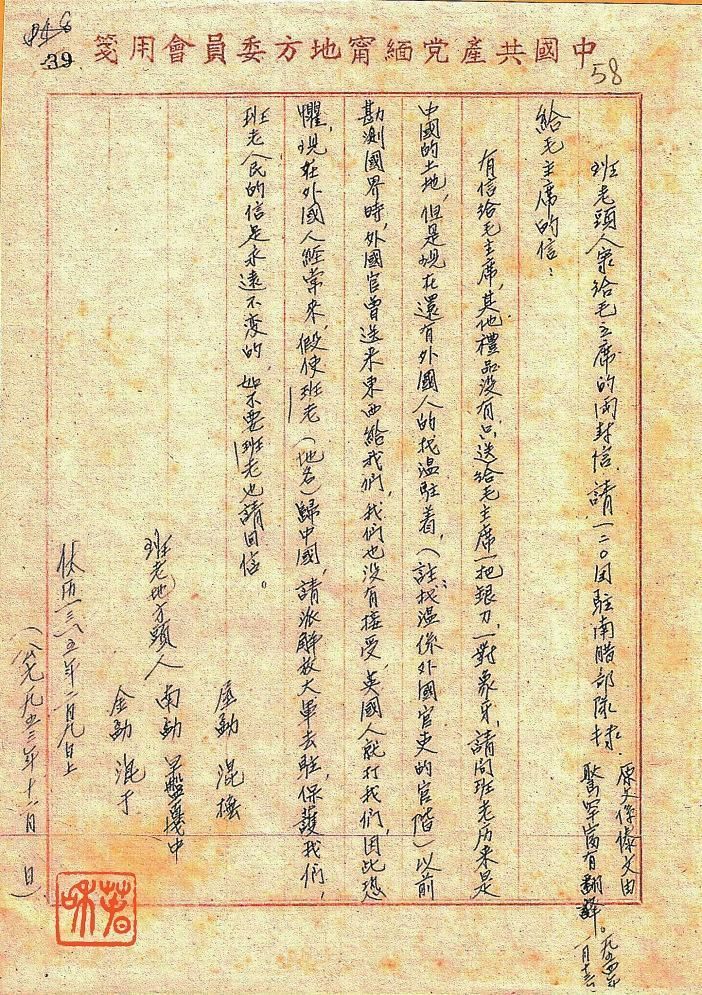 中國共產党緬甯地方委員會用箋
39
58
班老頭人給毛主席的兩封信，請一二〇团駐南腊部隊
原文係傣文由
罕富有翻譯。一九五四年一月十
給毛主席的信：
有信給毛主席，其他禮品沒有，只送給毛主席一把銀刀，一對象牙，請問班老历来是
中國的土地，但是現在還有外國人的找温駐着，（註：找温係外國官吏的官階）以前
勘測國界時，外國官曾送來東西給我們，我們也沒有接受，英國人就打我們，因此恐
懼，現在外國人經常來，假使班老（地名）歸中國，請派解放大軍去駐，保護我們，
班老人民的信是永遠不变的，如不要班老也請回信。
屋勐 混撫
班老地方頭人 南勐 盤戛中
金勐 混于
历一三一五年二月九日上
（公元一九五三年十二月 日）